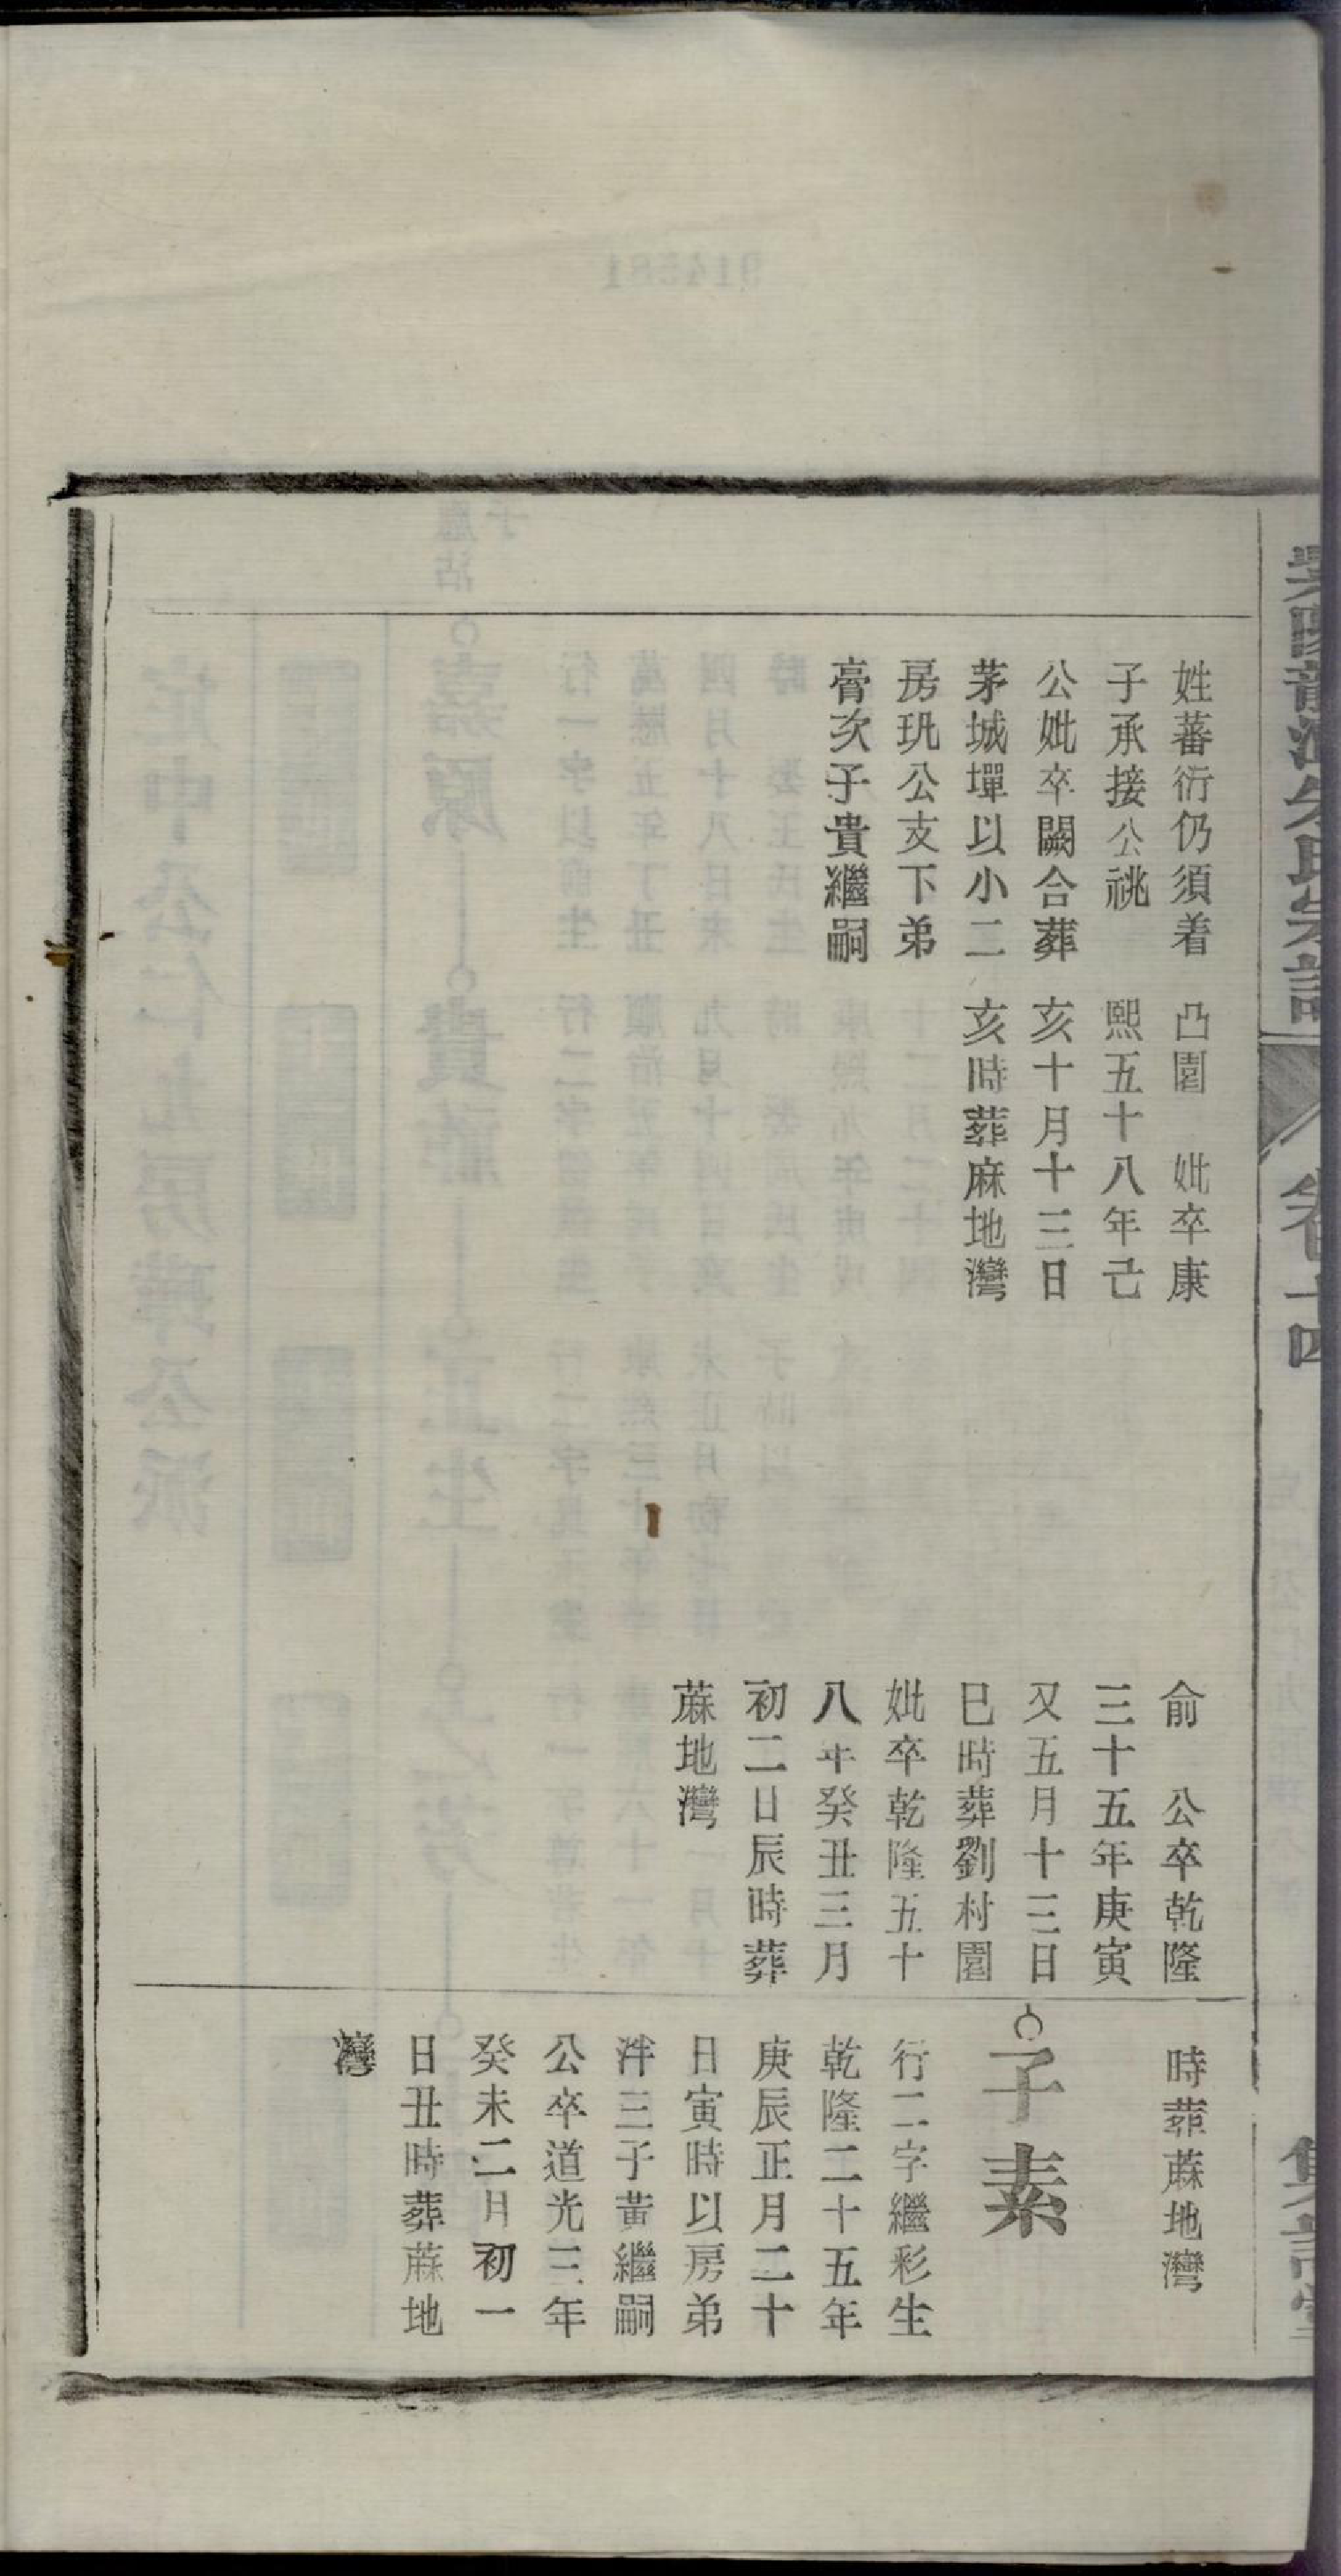 姓蕃衍仍須着
子承接公祧
公妣卒闕合葬
茅城墠以小二
房玧公支下弟
膏次子貴繼嗣
凸園 妣卒康
熙五十八年己
亥十月十三日
亥時葬麻地灣
俞 公卒乾隆
三十五年庚寅
又五月十三日
巳時葬劉村園
妣卒乾隆五十
八年癸丑三月
初二日辰時葬
蔴地灣
時葬蔴地灣
子素
行二字繼彩生
乾隆二十五年
庚辰正月二十
日寅時以房弟
泮三子黃繼嗣
公卒道光三年
癸未二月初一
日丑時葬蔴地
灣
朱氏宗譜
卷十四